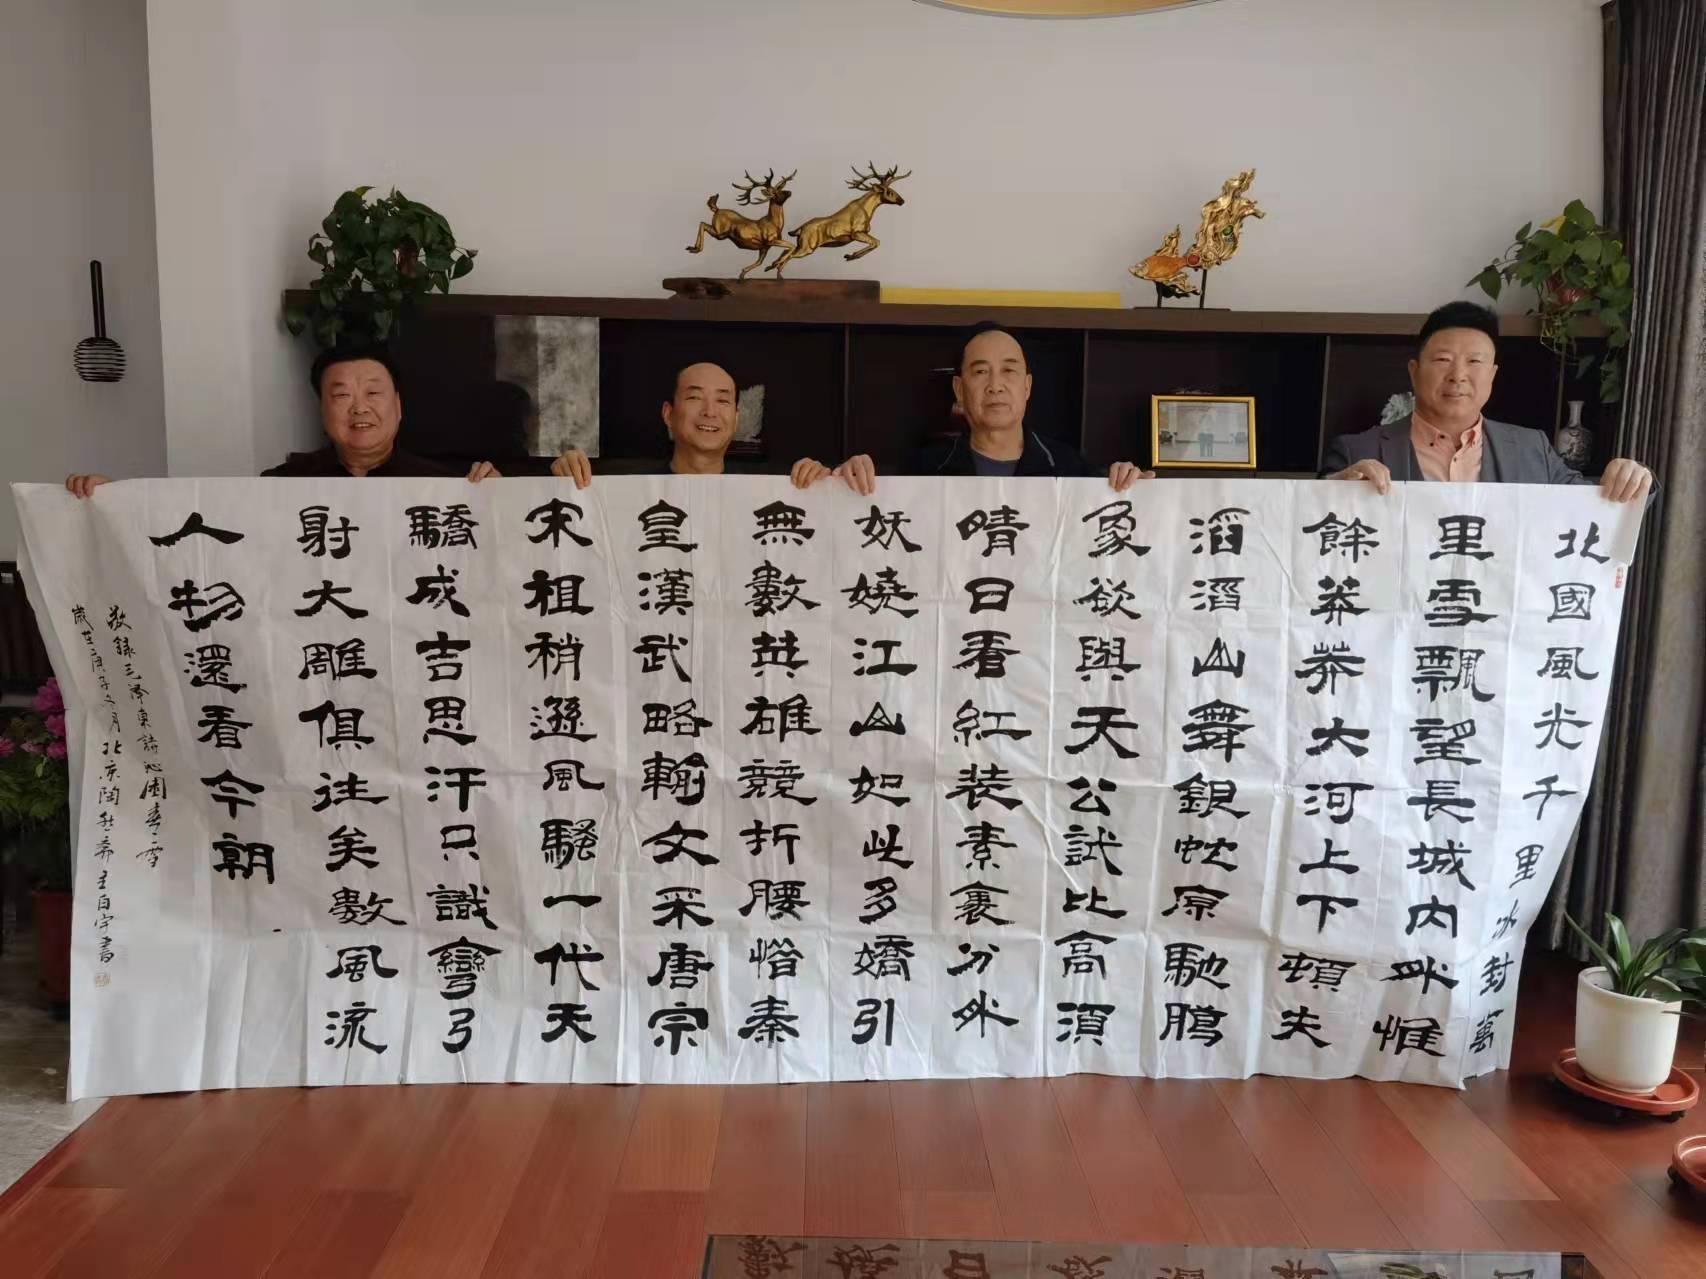 北國風光千里冰封萬
里雪飄望長城內外惟
餘莽莽大河上下頓失
滔滔山舞銀蛇原馳
象欲與天公試比高須
晴日看紅装素裹分外
妖嬈江山如此多嬌引
無數英雄競折腰惜秦
皇漢武略輸文采唐宗
宋祖稍遜風騷一代天
驕成吉思汗只識彎弓
射大雕俱往矣數風流
人物還看今朝
敬錄毛澤東詩沁園春雪
歲在庚子冬月北京齋主百宇書